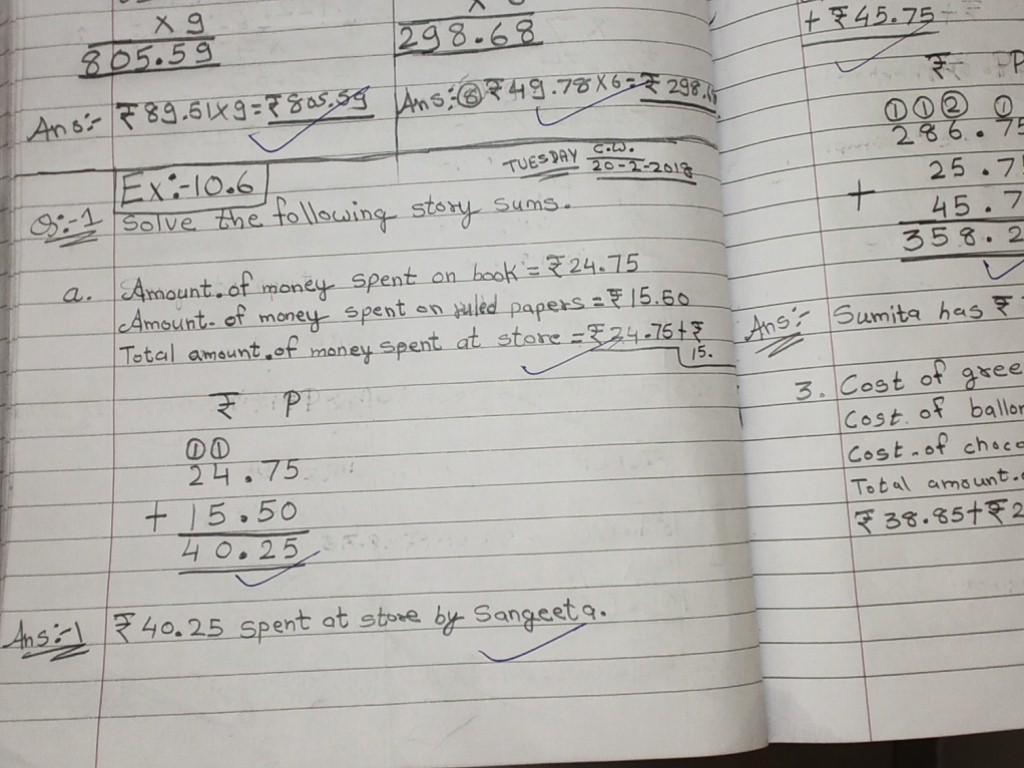 × 9
805.59
298.68
Ans:- ₹89.51×9=₹805.59
Ans:-⑥ ₹49.78×6=₹298.6
TUESDAY C.W. 20-2-2018
Ex:-10.6
Q:-1 Solve the following story sums.
a. Amount.of money spent on book=₹24.75
Amount.of money spent on ruled papers=₹15.50
Total amount.of money spent at store=₹24.75+₹
15.
₹ P
① ①
24.75
+ 15.50
40.25
Ans:-1 ₹40.25 spent at store by Sangeeta.
+₹45.75
₹ P
① ① ② ①
286.75
25.7
+ 45.7
358.2
Ans:- Sumita has ₹
3. Cost of gree
Cost.of ballon
Cost.of choco
Total amount.
₹38.85+₹2